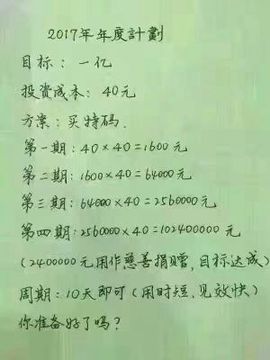 2017年年度計劃
目标：一亿
投資成本：40元
方案：买特码.
第一期：40×40=1600元
第二期：1600×40=64000元
第三期：64000×40=2560000元
第四期：2560000×40=102400000元
(2400000元用作慈善捐赠,目标达成)
周期：10天即可(用时短,见效快)
你准备好了吗？